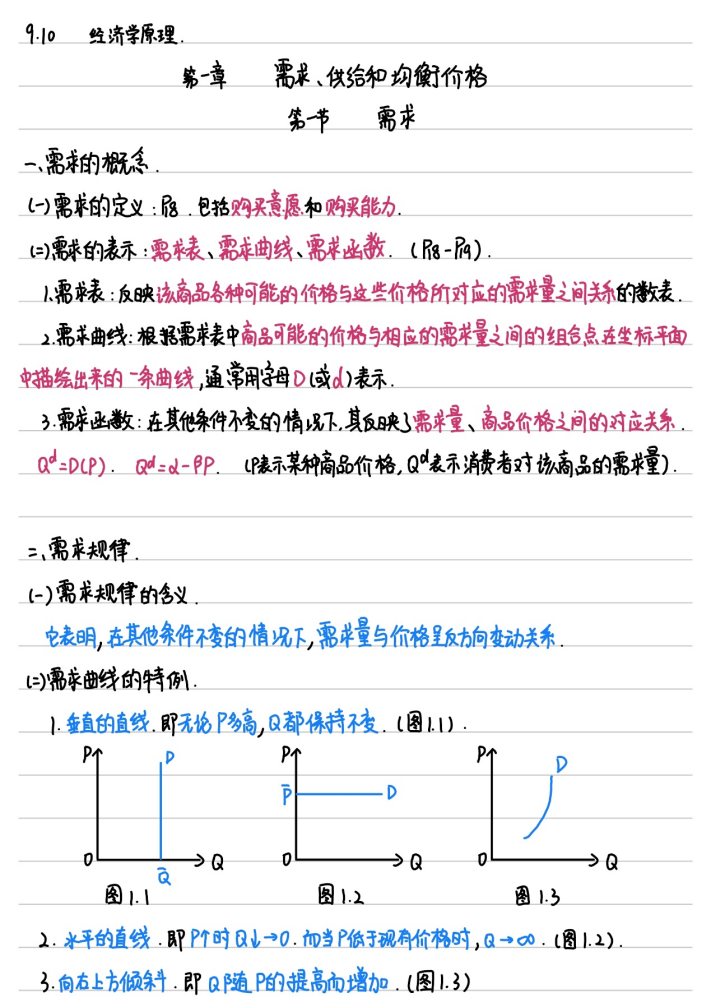 9.10 经济学原理.
第一章 需求、供给和均衡价格
第一节 需求
一、需求的概念.
(一)需求的定义:P8.包括购买意愿和购买能力.
(二)需求的表示:需求表、需求曲线、需求函数.(P8-P9).
1.需求表:反映该商品各种可能的价格与这些价格所对应的需求量之间关系的数表.
2.需求曲线:根据需求表中商品可能的价格与相应的需求量之间的组合点在坐标平面
中描绘出来的一条曲线,通常用字母D(或d)表示.
3.需求函数:在其他条件不变的情况下,其反映了需求量、商品价格之间的对应关系.
Qᵈ=D(P). Qᵈ=α-βP. (P表示某种商品价格,Qᵈ表示消费者对该商品的需求量).
二、需求规律.
(一)需求规律的含义.
它表明,在其他条件不变的情况下,需求量与价格呈反方向变动关系.
(二)需求曲线的特例.
1.垂直的直线.即无论P多高,Q都保持不变.(图1.1).
P D P P D
P̄ D
0 Q 0 Q 0 Q
Q̄
图1.1 图1.2 图1.3
2.水平的直线.即P↑时Q↓→0.而当P低于现有价格时,Q→∞.(图1.2).
3.向右上方倾斜.即Q随P的提高而增加.(图1.3)